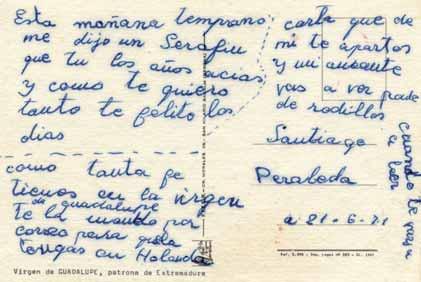 Esta mañana temprano
me dijo un Serafin
que tu los años acias
y como te quiero
tanto te felito los
dias
como tanta fe
tienes en la virgen
de guadalupe
te la mando por
correo para que la
tengas en Holanda
Virgen de GUADALUPE, patrona de Extremadura
carta que de
mi te apartas
y mi amante
vas a ver
de rodillas
cuando te vaya
a leer
Santiago
Peraloda
a 21-6-71